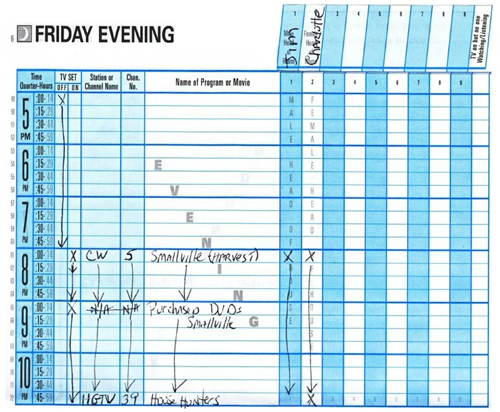 6 FRIDAY EVENING
Jim
Charlotte
1 2 3 4 5 6 7 8 9
TV on but no one Watching/Listening
Time Quarter-Hours TV SET OFF ON Station or Channel Name Chan. No. Name of Program or Movie 1 2 3 4 5 6 7 8 9
MALE HEAD OF HOUSE
FEMALE HEAD HOUSE
EVENING
5 PM :00-14 X
:15-29
:30-44
:45-59
6 PM :00-14
:15-29
:30-44
:45-59
7 PM :00-14
:15-29
:30-44
:45-59
8 PM :00-14 X CW 5 Smallville (Harvest) X X
:15-29
:30-44
:45-59
9 PM :00-14 X N/A N/A Purchased DVDs
:15-29 Smallville
:30-44
:45-59
10 PM :00-14
:15-29
:30-44
:45-59 HGTV 39 House Hunters X